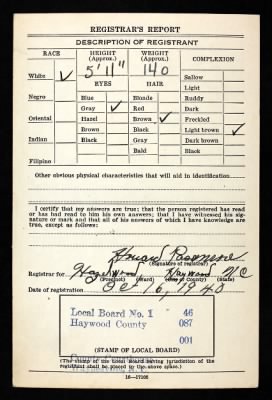 REGISTRAR'S REPORT
DESCRIPTION OF REGISTRANT
RACE HEIGHT (Approx.) WEIGHT (Approx.) COMPLEXION
5' 11" 140
White ✓ Sallow
EYES HAIR Light
Negro Blue Blonde Ruddy
Gray ✓ Red Dark
Oriental Hazel Brown ✓ Freckled
Brown Black Light brown ✓
Indian Black Gray Dark brown
Bald Black
Filipino
Other obvious physical characteristics that will aid in identification
I certify that my answers are true; that the person registered has read or has had read to him his own answers; that I have witnessed his signature or mark and that all of his answers of which I have knowledge are true, except as follows:
(Signature of registrar)
Registrar for Hazelwood Haywood N C
(Precinct) (Ward) (City or County) (State)
Date of registration Oc 16, 1940
Local Board No. 1 46
Haywood County 087
001
(STAMP OF LOCAL BOARD)
(The stamp of the Local Board having jurisdiction of the registrant shall be placed in the above space.)
16—17105